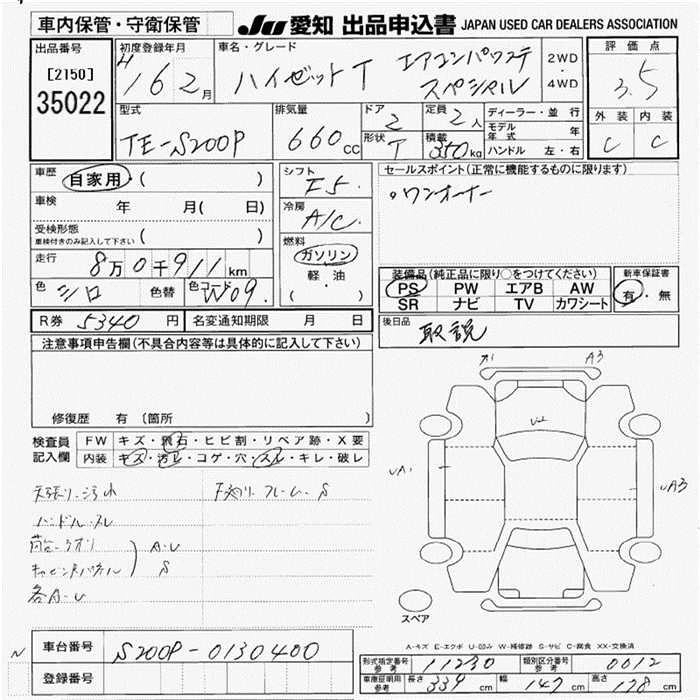 車内保管・守衛保管 JU 愛知 出品申込書 JAPAN USED CAR DEALERS ASSOCIATION
出品番号 [2150] 35022
初度登録年月 H 16 2月
車名・グレード ハイゼットT エアコンパワステスペシャル
2WD・4WD
評価点 3.5
外装 内装
C C
型式 TE-S200P
排気量 660cc
ドア 2 形状 T
定員 2人 積載 350kg
ディーラー・並行
モデル年式 年
ハンドル 左・右
車歴 自家用 ( )
車検 年 月( 日)
受検形態 車検付きのみ記入して下さい ( )
走行 8万0千911km
色 シロ 色替 色コード W09.
シフト F5.
冷房 A/C.
燃料 ガソリン
軽・油
( )
セールスポイント(正常に機能するものに限ります)
・ワンオーナー
装備品(純正品に限り○をつけてください) 新車保証書
PS PW エアB AW 有・無
SR ナビ TV カワシート
後日品 取説
R券 5340円 名変通知期限 月 日
注意事項申告欄(不具合内容等は具体的に記入して下さい)
修復歴 有 (箇所
検査員記入欄 FW キズ・飛石・ヒビ割・リペア跡・X要
内装 キズ・汚レ・コゲ・穴・スレ・キレ・破レ
天張り・汚れ 下廻りフレーム・S
ハンドル・スレ
A・U
S
各A・U
A1 A3
UA1 UA3
スペア
A-キズ E-エクボ U-凹み W-補修跡 S-サビ C-腐食 XX-交換済
N 車台番号 S200P-0130400
登録番号
形式指定番号 参考 11230 類別区分番号 参考 0012
車庫証明用 参考 長さ 339cm 幅 147cm 高さ 178cm